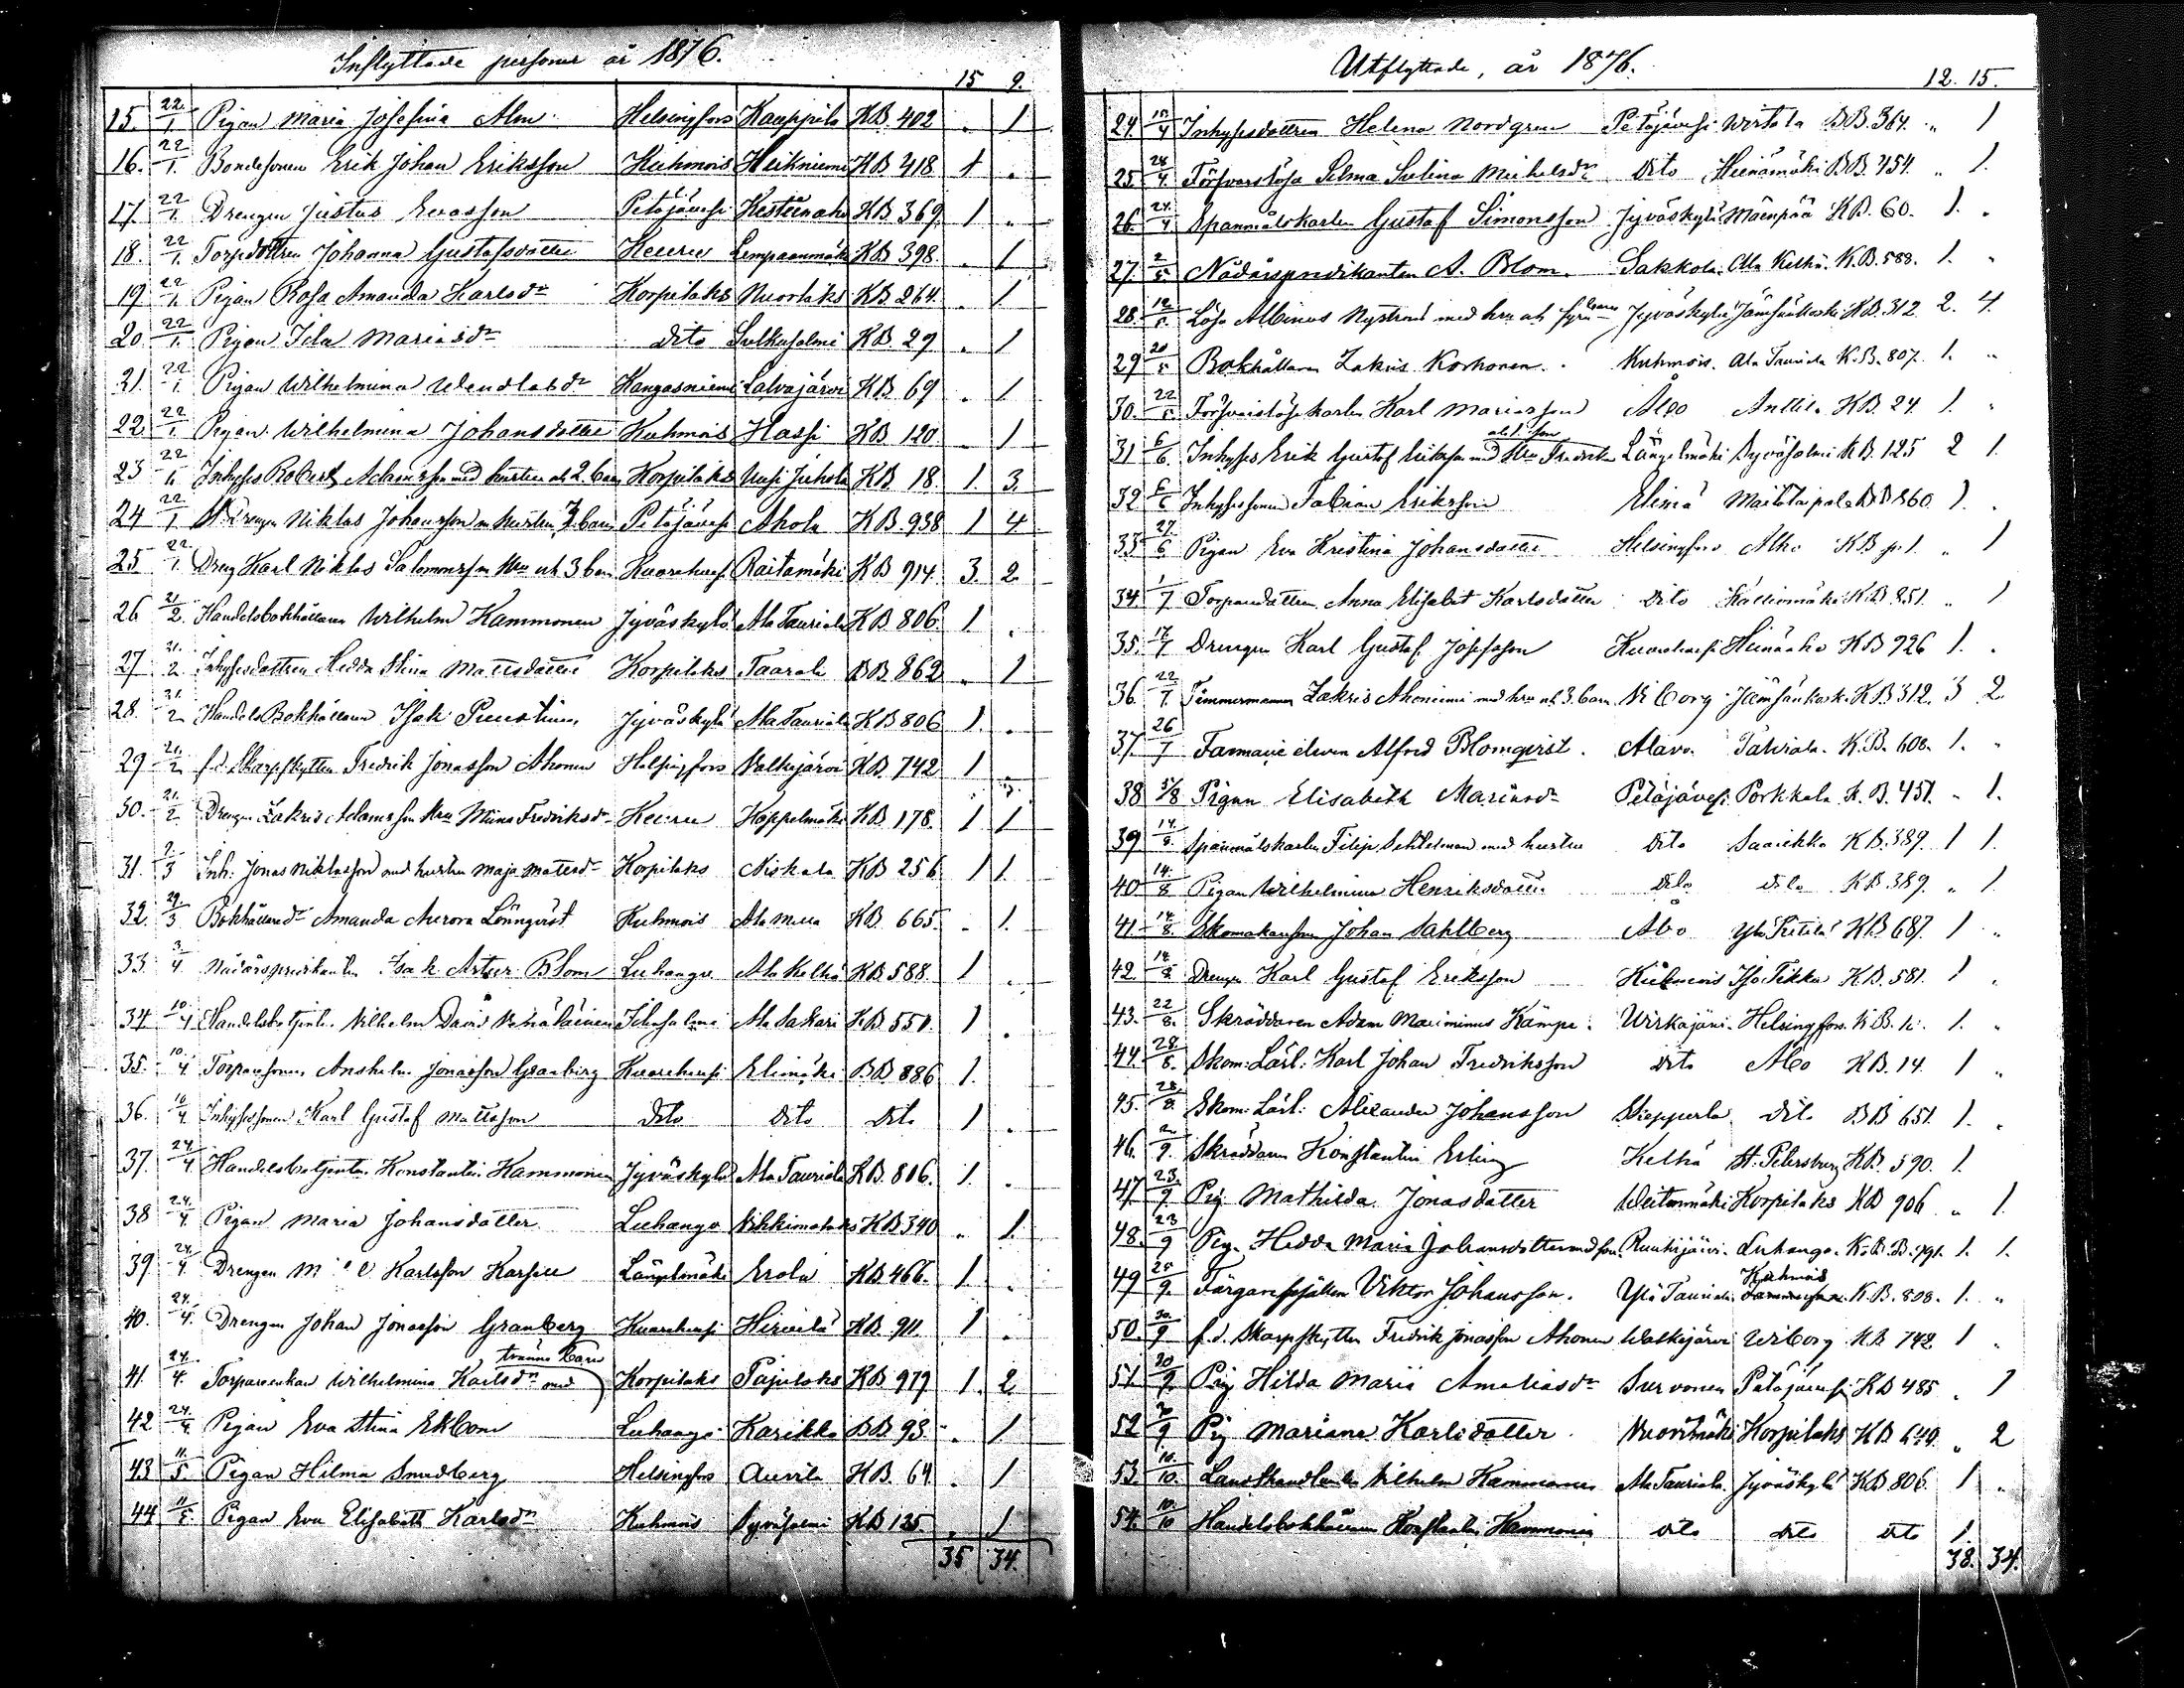 Inflyttade personer år 1876.
15 9.
15. 22/1. Pigan Maria Josefina Alm Helsingfors Kauppila KB. 402 „ 1
16. 22/1. Bondesonen Erik Johan Eriksson Kuhmois Heikniemi KB 418 1 „
17. 22/1. Drengen Justus Evasson Petäjävesi KB. 369. 1 „
18. 22/1. Johanna Gustafsdotter Keuru KB 398. „ 1
19 22/1. Pigan Rosa Amanda Karlsdr Korpilaks Nuorlaks KB 264. „ 1
20. 22/1. Pigan Ida Mariasdr dito KB. 29 „ 1
21. 22/1 Pigan Wilhelmina Kangasniemi Salvajärvi KB 69 „ 1
22. 22/1. Pigan Wilhelmina Johansdotter Kuhmois Hassi KB 120 „ 1
23 22/1. Inhyses Robert Adamsson med hustru ah 2 barn Korpilaks KB 18. 1. 3.
24 22/1 Niklas Johansson Petäjävesi Ahola KB. 938 1 4
25 22/1. Dreng Karl Niklas Salomonsson 3 barn Raitamäki KB 914. 3. 2.
26 21/2. Handelsbokhållaren Wilhelm Kammonen Jyväskylä Ala Tauriala KB. 806. 1. „
27 21/2. Inhysesdottren Hedda Stina Mattsdotter Korpilaks Taarala BB. 862 „ 1
28. 21/2 Handels Bokhållaren Isak Puustinen Jyväskylä Ala Tauriala KB 806 1. „
29 21/2 f.d. Skarpskytten Fredrik Jonasson Ahonen Helsingfors Valkijärvi KB. 742 1 „
30. 21/2 Drengen Zakris Adamsson Miina Fredriksdr Keuru Hoppelmäki KB. 178. 1 1
31. 9/3 Inh: Jonas Niklasson med hustru Maja Mattsdr Korpilaks Niskala KB 256 1 1.
32. 29/3 Amanda Aurora Lönnqvist Kuhmois KB. 665. „ 1.
33. 3/4 Isak Artur Blom Luhango Ala Kelhä KB 588. 1 „
34 10/4 Wilhelm David Ala Sakari KB. 551. 1 „
35. 10/4 Torparsonen Anshelm Jonasson Granberg Elimäki BB 886 1.
36. 10/4 Inhysessonen Karl Gustaf Mattsson dito dito dito 1 „
37. 24/4 Handelsbetjenten Konstantin Hammonen Jyväskylä Ala Tauriala KB. 806. 1. „
38 24/4. Pigan Maria Johansdotter Luhango KB 340 „ 1.
39 24/4. Drengen Karlsson Längelmäki Erola KB 466. 1. „
40. 24/4. Drengen Johan Jonasson Granberg Hirvilä KB. 911. 1 „
tvänne barn
41. 24/4. Wilhelmina Karlsdr med Korpilaks Pajulaks KB 979 1. 2.
42 24/4 Pigan Eva Stina Ekbom Luhango Karikko BB 93. „ 1
43 11/5 Pigan Hilma Smedberg Helsingfors Auvila KB. 64. „ 1
44 11/5. Pigan Eva Elisabeth Karlsdr Kuhmois Syväsalmi KB 125. „ 1
35 34.
Utflyttade, år 1876.
12. 15.
24. 10/4 Inhysesdottren Helena Nordgren Petäjävesi Wirtala BB. 364. „ 1
25. 24/4. Försvarslösa Selma Selina Mickelsdr dito Heinämäki BB. 454. „ 1.
26. 24/4 Spanmålskarlen Gustaf Simonsson Jyväskylä Mäenpää KB. 60. 1. „
27. 2/5. A. Blom. Sakkola. Ala Kelhä. K.B. 588. 1. „
28. 12/5. Lösa Albinus Nyström med hru ah fyra barn Jyväskylä Jämsänkoski KB. 312 2. 4.
29 20/5 Bokhållaren Zakris Korhonen. Kuhmois. Ala Tauriala K.B. 807. 1. „
30. 22/5 Försvarslöse karlen Karl Mariasson Åbo Anttila KB. 24. 1. „
31 6/6. Inhyses Erik Gustaf Eriksson med hru Fredrika Längelmäki Syväsalmi KB. 125 2 1.
32 6/6 Inhysessonen Fabian Eriksson Elimä BB 860. 1. „
33 27/6 Pigan Eva Kristina Johansdotter Helsingfors Alho KB „ 1
34. 1/7 Anna Elisabet Karlsdotter dito Kalliomäki K.B. 851. „ 1
35. 17/7 Drengen Karl Gustaf Josefsson Heinäaho KB 926 1. „
36. 22/7. Timmermannen Zakris Ahoniemi med hru ah 3 barn. Wiborg Jämsänkoski KB 312. 3 2.
37. 26/7 Alfred Blomqvist. Alavo. K.B. 608. 1. „
38 5/8 Pigan Elisabeth Mariasdr Petäjävesi Porkkala K.B. 451. „ 1.
39 14/8. Spanmålskarlen Filip med hustru dito Saarikko KB. 389. 1 1.
40 14/8 Pigan Wilhelmina Henriksdotter dito dito KB 389. „ 1.
41 14/8. Johan Sahlberg Åbo KB 687. 1 „
42. 14/8. Drengen Karl Gustaf Eriksson Kuhmois Iso Tekka KB. 581. 1 „
43. 22/8. Skräddaren Adam Maximinus Kämpe. Helsingfors. KB. 1. „
44. 28/8. Skom: Lärl: Karl Johan Fredriksson dito Åbo KB. 14. 1 „
45. 28/8. Skom: Lärl: Alexander Johansson Seppola dito BB 651. 1. „
46. 2/9. Skräddaren Konstantin Erling Kelhä St. Petersburg KB. 590. 1.
47 23/9. Pig: Mathilda Jonasdotter Korpilaks KB 906 „ 1.
48. 23/9 Pig. Hedda Maria Johansdotter med son. Ruuhijärvi. Luhango. K.B. 791. 1. 1.
Kuhmois
49 28/9. Viktor Johansson. Ylä Tauriala. K.B. 808. 1. „
50. 30/9 f.d. Skarpskytten Fredrik Jonasson Ahonen Walkijärvi Wiborg KB 742 1 „
51 30/9. Pig Hilda Maria Amaliasdr Survonen Petäjävesi KB 485 „ 1
52 30/9 Pig Mariana Karlsdotter. Korpilaks KB 649. „ 2
53. 10/10. Wilhelm Kammonen Ala Tauriala. Jyväskylä KB 806. 1 „
54. 10/10 Handelsbokhållaren Konstantin Hammonen dito dito dito 1.
38. 34.